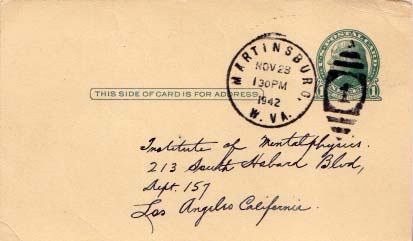 U.S. POSTAL CARD
MARTINSBURG,
NOV 28
1 30 PM
1942
W. VA.
THIS SIDE OF CARD IS FOR ADDRESS
1 1
Institute of Mentalphysics.
213 South Hobard Blvd,
Dept. 157
Los Angeles California.